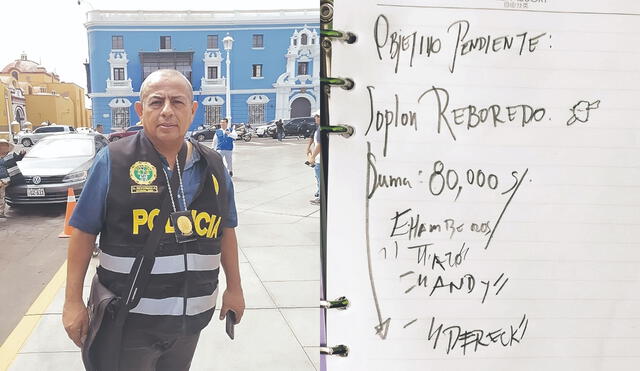 POLICIA
OBJETIVO PENDIENTE:
Soplon REBOREDO.
Suma: 80,000 S/.
CHAMBEROS
"TIATO"
- "KANDY"
- "DERECK"